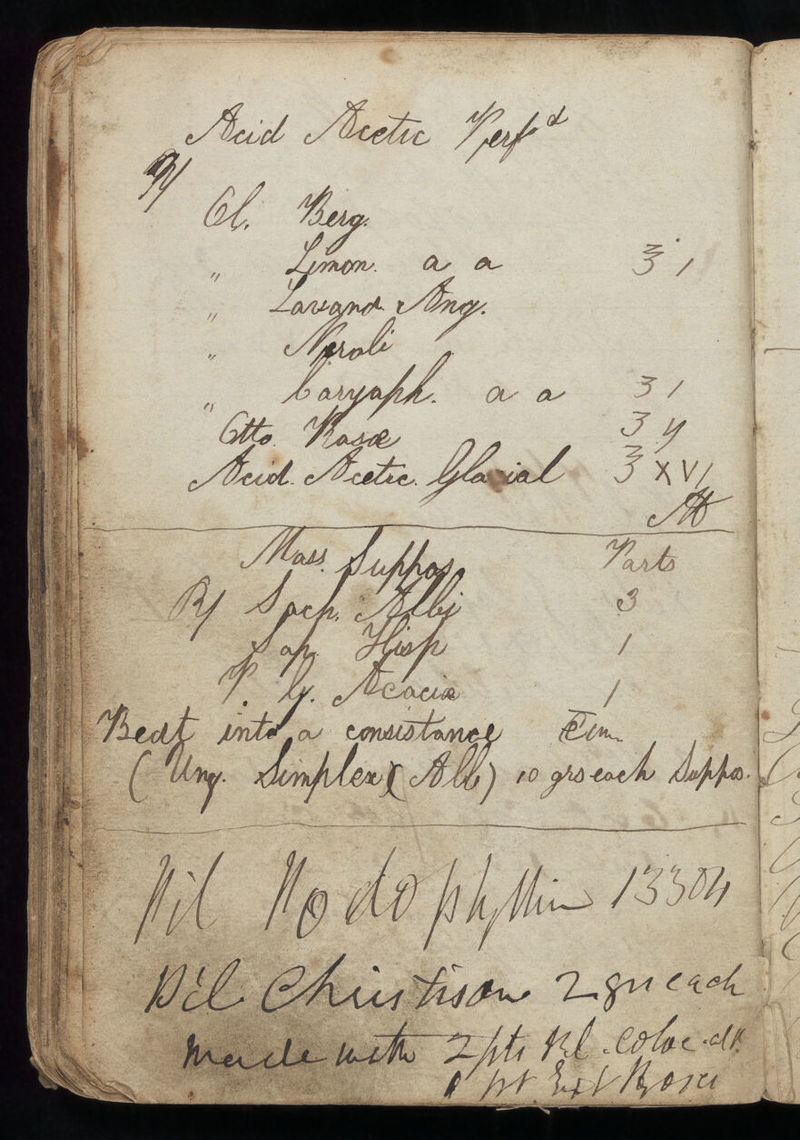 Acid Acetic Perf^d
℞
Ol. Berg.
„ Limon. a a ℥ i
„ Lavand. Ang.
„ Neroli
„ Caryoph. a a ʒ i
Otto. Rosæ ʒ ij
Acid. Acetic. Glacial ℥ XVI
M
Mass. Suppos. Parts
℞ Sacch. Albi 3
Sap. Hisp 1
P. G. Acaciæ 1
Beat into a consistance c̄ um
(Ung. Simplex (Alb) 10 grs each Suppos.
Pil Podophyllin 13304
Pil Christison 2 grs each
made with 2 pts Pil. Coloc.
1 pt Ext Hyosci